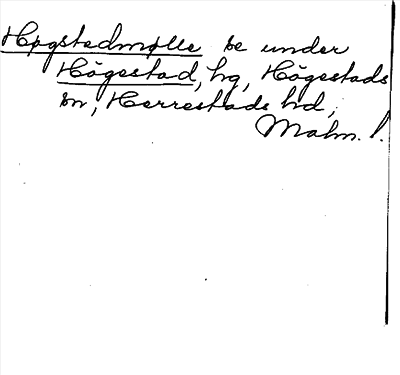 Høgstadmølle be under
Högestad, hg, Högestads
sn, Herrestads hd,
Malm. l.